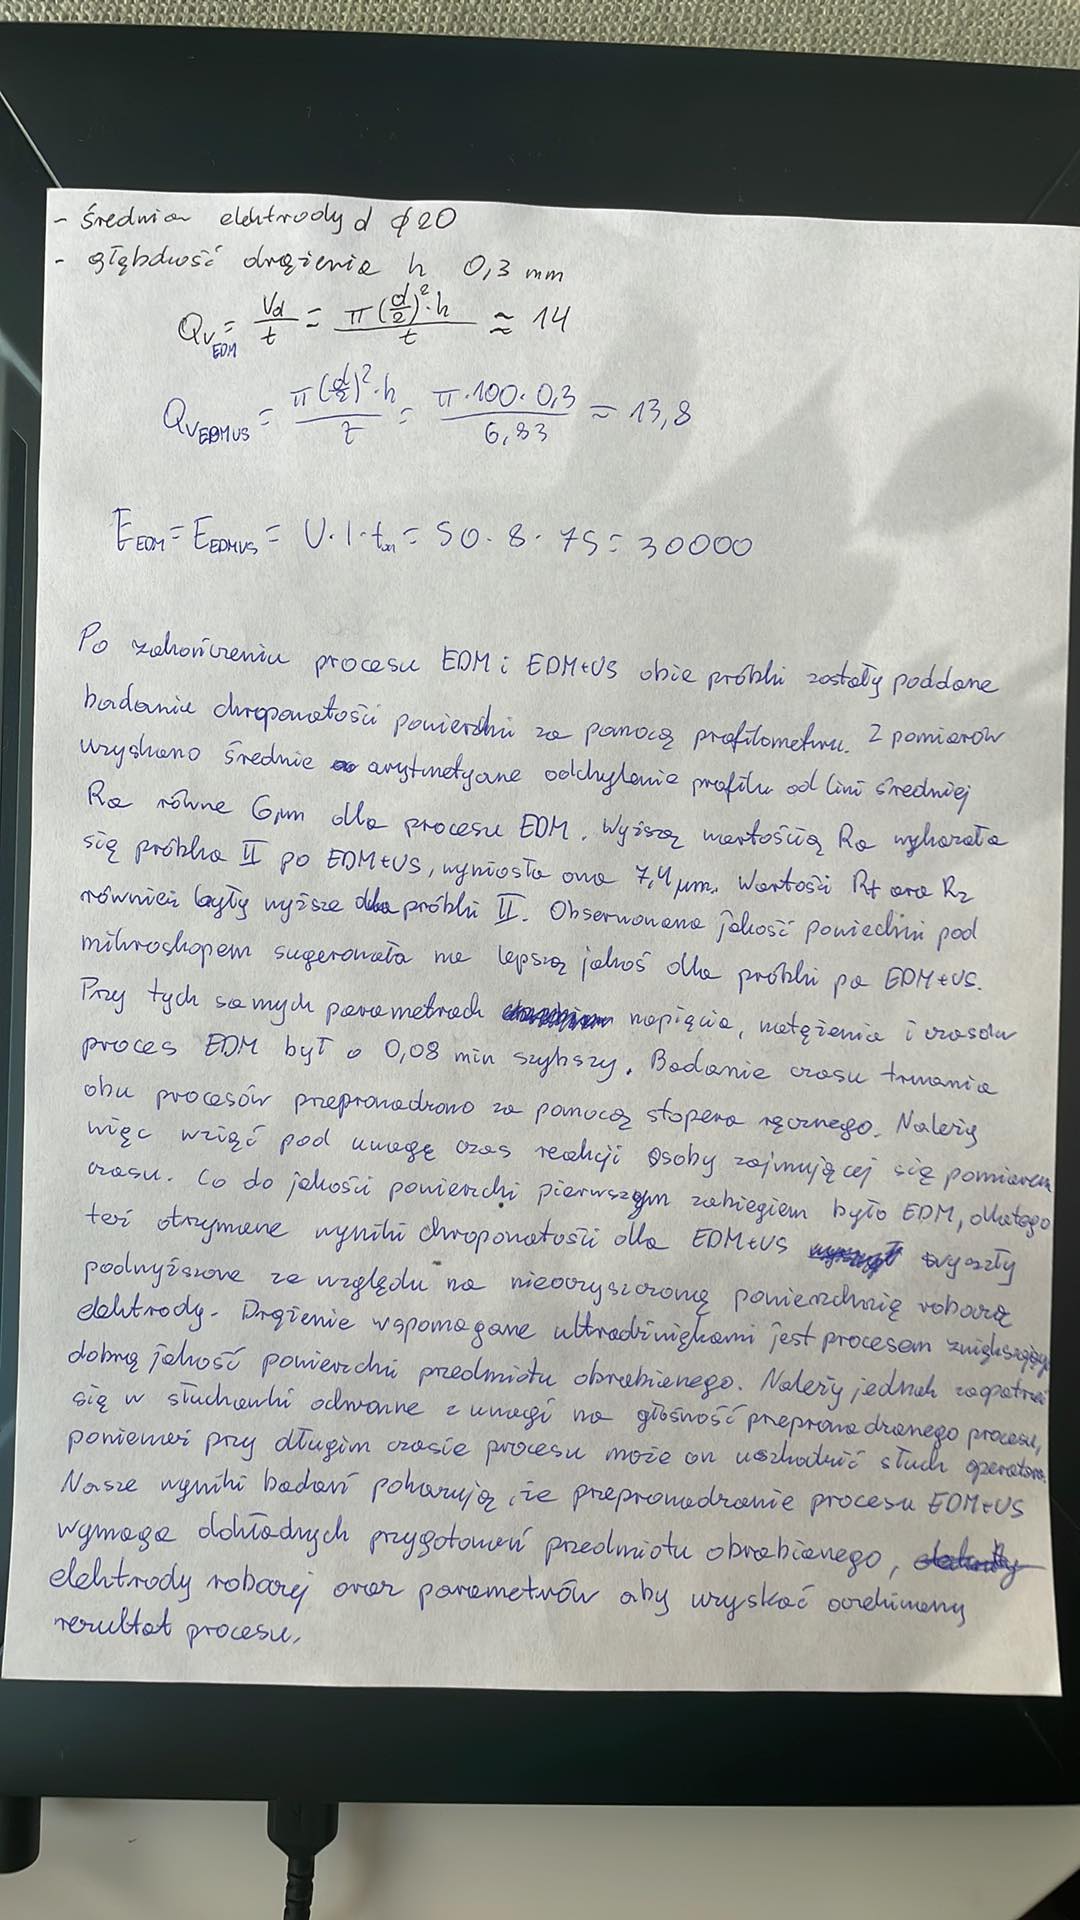 - średnia elektrody d ϕ20
- głębokość drążenia h 0,3 mm
Qv EDM = Vd/t = π(d/2)²·h / t ≈ 14
Qv EDMUS = π(d/2)²·h / t = π·100·0,3 / 6,83 ≈ 13,8
E EDM = E EDMUS = U·I·ton = 50·8·75 = 30000
Po zakończeniu procesu EDM i EDM+US obie próbki zostały poddane
badaniu chropowatości powierzchni za pomocą profilometru. Z pomiarów
uzyskano średnie arytmetyczne odchylenie profilu od lini średniej
Ra równe 6μm dla procesu EDM. Wyższą wartością Ra wykazała
się próbka II po EDM+US, wyniosła ona 7,4 μm. Wartości Rt oraz Rz
również były wyższe dla próbki II. Obserwowana jakość powiechni pod
mikroskopem sugerowała na lepszą jakoś dla próbki po EDM+US.
Przy tych samych parametrach napięcia, natężenia i czasów
proces EDM był o 0,08 min szybszy. Badanie czasu trwania
obu procesów przeprowadzono za pomocą stopera ręcznego. Należy
więc wziąć pod uwagę czas reakcji osoby zajmującej się pomiarem
czasu. Co do jakości powierzchi pierwszym zabiegiem było EDM, dlatego
też otrzymane wyniki chropowatości dla EDM+US wyszły
podwyższone ze względu na nieoczyszczoną powierzchnię roboczą
elektrody. Drążenie wspomagane ultradźwiękami jest procesem zwiększający
dobrą jakość powierzchi przedmiotu obrabianego. Należy jednak zaopatrzeć
się w słuchawki ochronne z uwagi na głośność przeprowadzanego procesu,
ponieważ przy długim czasie procesu może on uszkodzić słuch operatora.
Nasze wyniki badań pokazują, że przeprowadzanie procesu EDM+US
wymaga dokładnych przygotowań przedmiotu obrabianego,
elektrody roboczej oraz parametrów aby uzyskać oczekiwany
rezultat procesu.